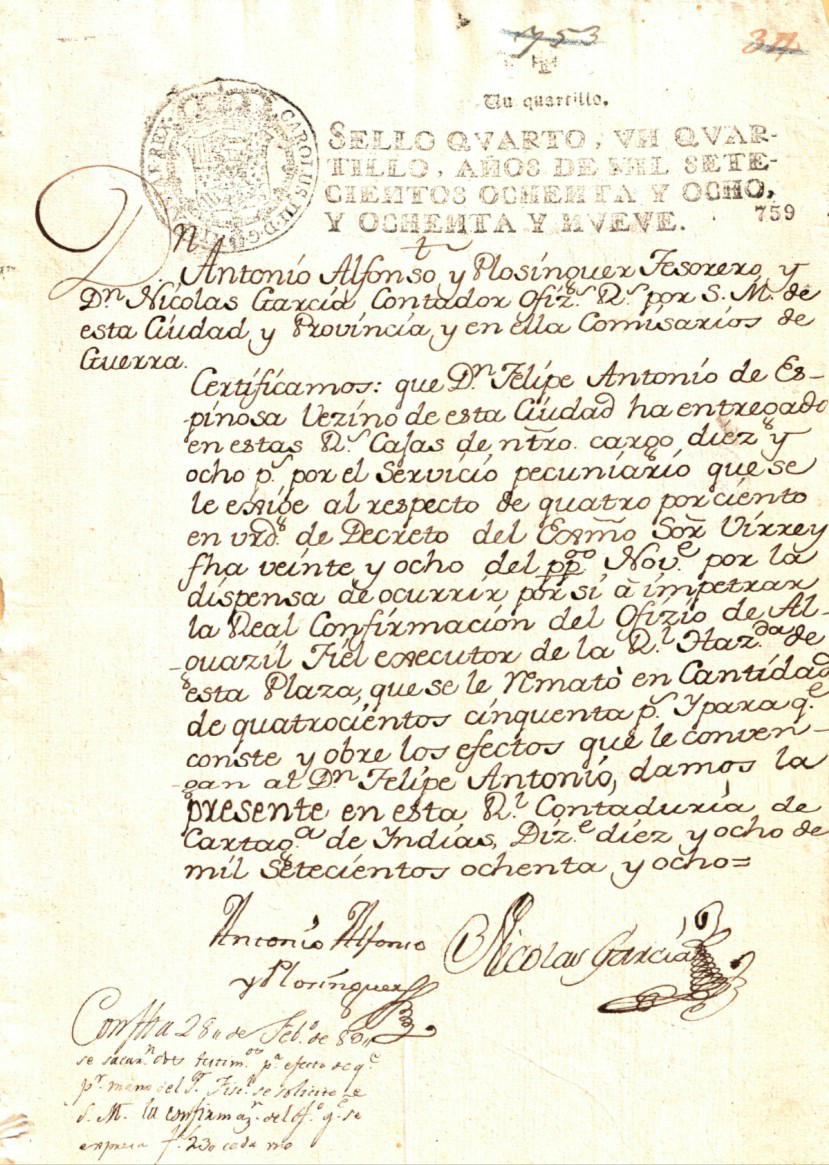 753
37
Un quartillo.
SELLO QVARTO, VN QVAR-
TILLO, AÑOS DE MIL SETE-
CIENTOS OCHENTA Y OCHO,
Y OCHENTA Y NVEVE.
759
CAROLUS III. D. G. REX
Dn Antonio Alfonso y Plosinguer Tesorero, y
Dn Nicolas Garcia Contador Ofizs Rs por S. M. de
esta Ciudad y Provincia, y en ella Comisarios de
Guerra.
Certificamos: que Dn Felipe Antonio de Es-
pinosa Vezino de esta Ciudad ha entregado
en estas Rs Cajas de ntro. cargo diez y
ocho ps por el Servicio pecuniario que se
le exige al respecto de quatro por ciento
en vrd de Decreto del Exmo Sor Virrey
fha veinte y ocho del ppdo Nove por la
dispensa de ocurrir por si à impetrar
la Real Confirmación del Ofizio de Al-
guazil Fiel executor de la Rl Hazda de
esta Plaza, que se le Rematò en Cantidad
de quatrocientos cinquenta ps Y para qe
conste y obre los efectos que le conven-
gan al Dn Felipe Antonio, damos la
presente en esta Rl Contaduria de
Cartaga de Indias, Dize diez y ocho de
mil setecientos ochenta y ocho=
Antonio Alfonso
y Plosinguer
Nicolas Garcia
28 de Febo de 89
se sacarn dos testimos pa efecto de qe
pr mano del Sr Fiscl se solicite de
S. M. la confirmazn del ofo qe se
expresa